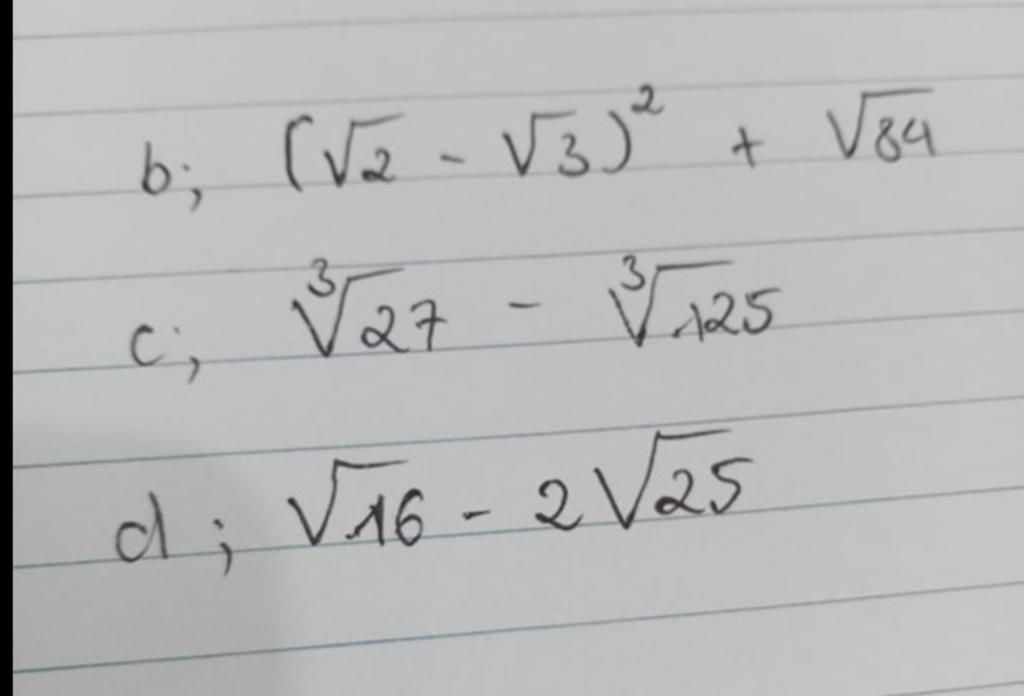 b; (√2 - √3)² + √84
c; ∛27 - ∛125
d; √16 - 2√25